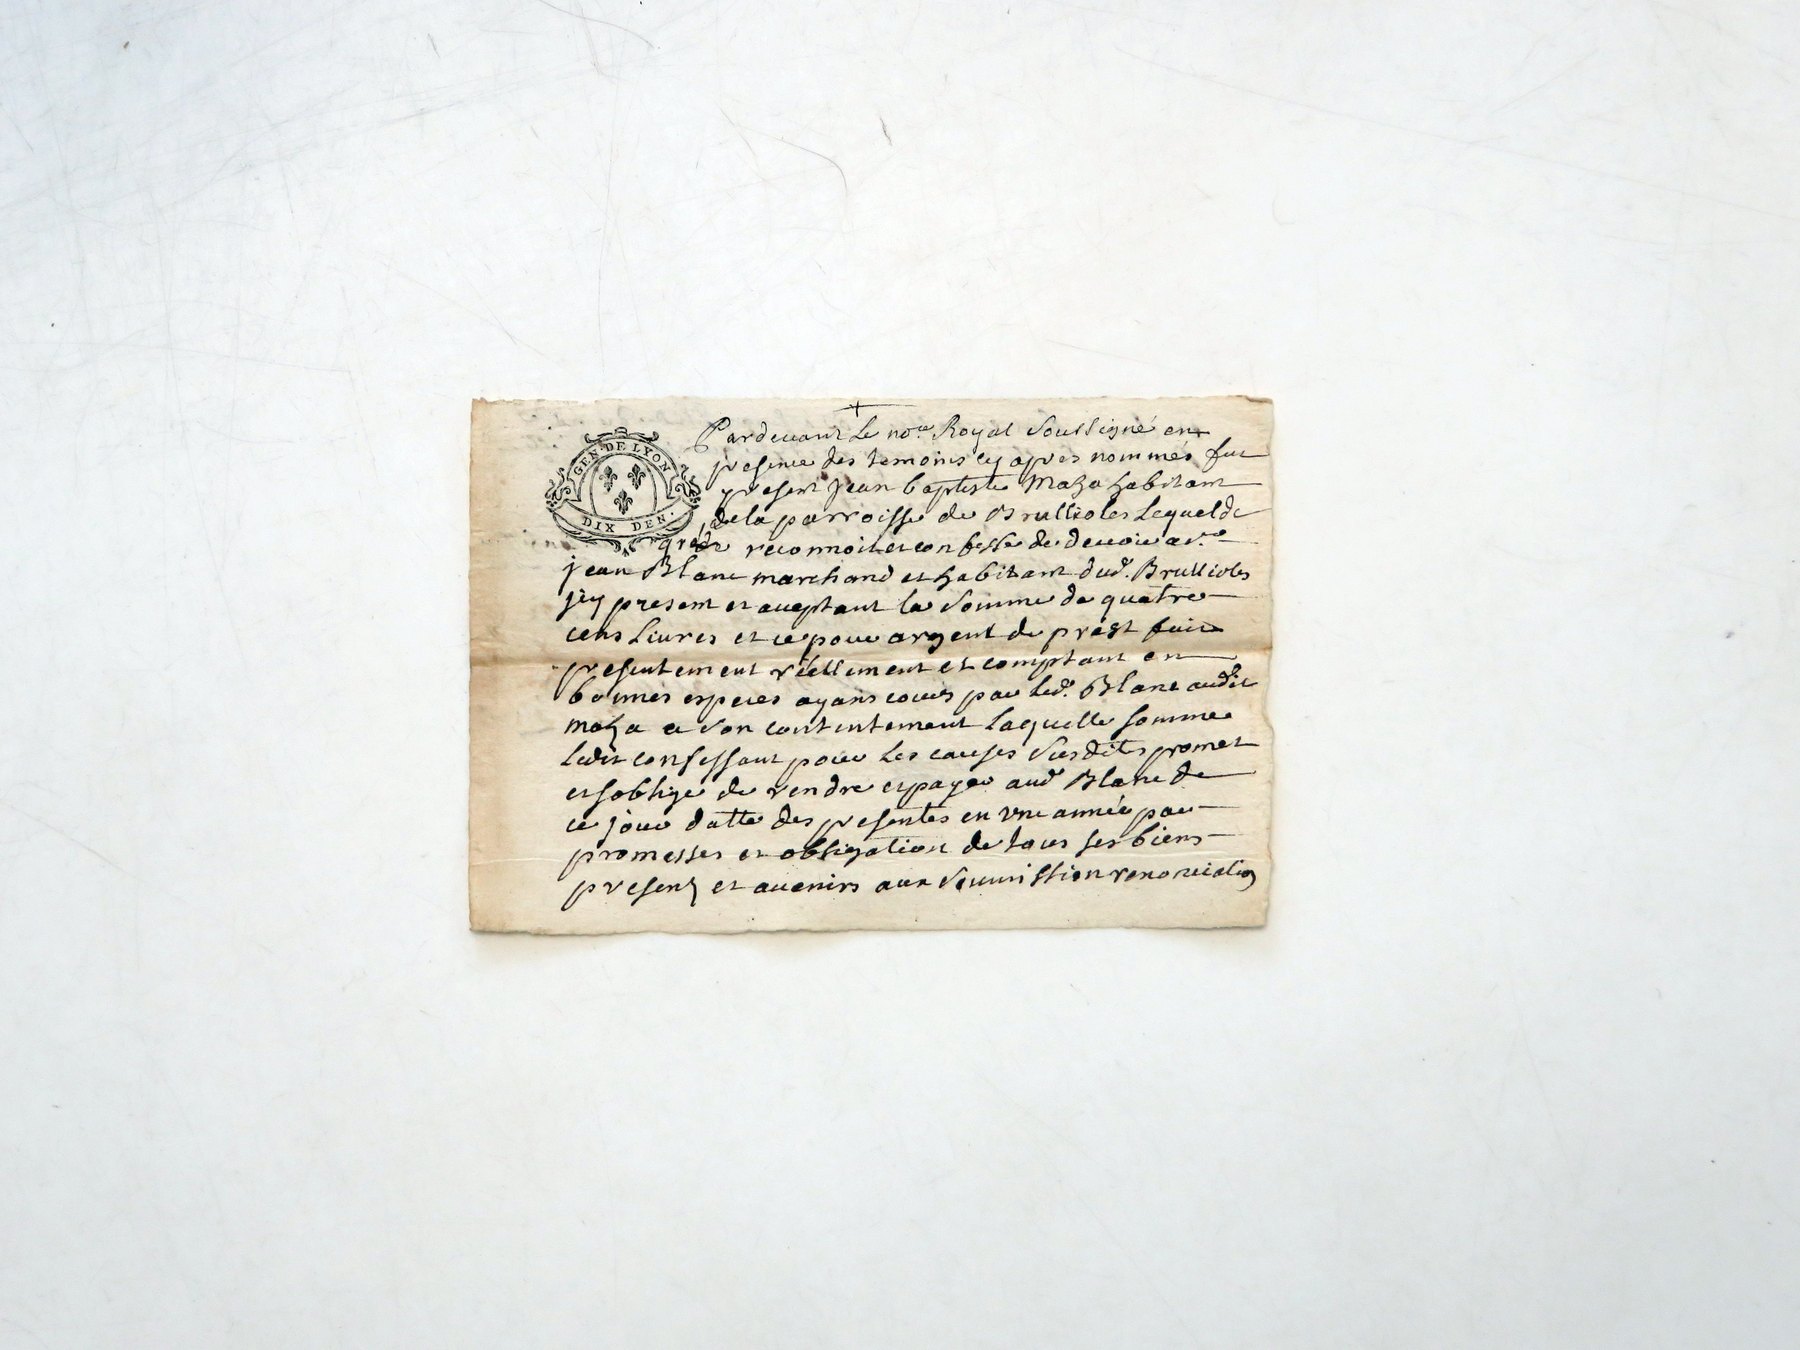 GEN. DE LYON
DIX DEN.
Pardeuant Le no.re Royal Soussigné en
presence des temoins cy apres nommés fut
present Jean baptiste Maza habitant
de la parroisse de Brullioles Lequel de
gré reconnoit et confesse de deuoir a s.r
jean Blanc marchand et habitant dud. Brullioles
jcy present et aceptant la somme de quatre
cens Liures et ce pour argent de prest fait
presentement réellement et comptant en
bonnes especes ayans cours par led. Blanc audit
maza a son contentement Laquelle somme
Ledit confessant pour Les causes susdites promet
et soblige de rendre et payer aud Blanc de
ce jour datte des presentes en vne année par
promesses et obligation de tous ses biens
presens et auenirs aux soumission renonciation